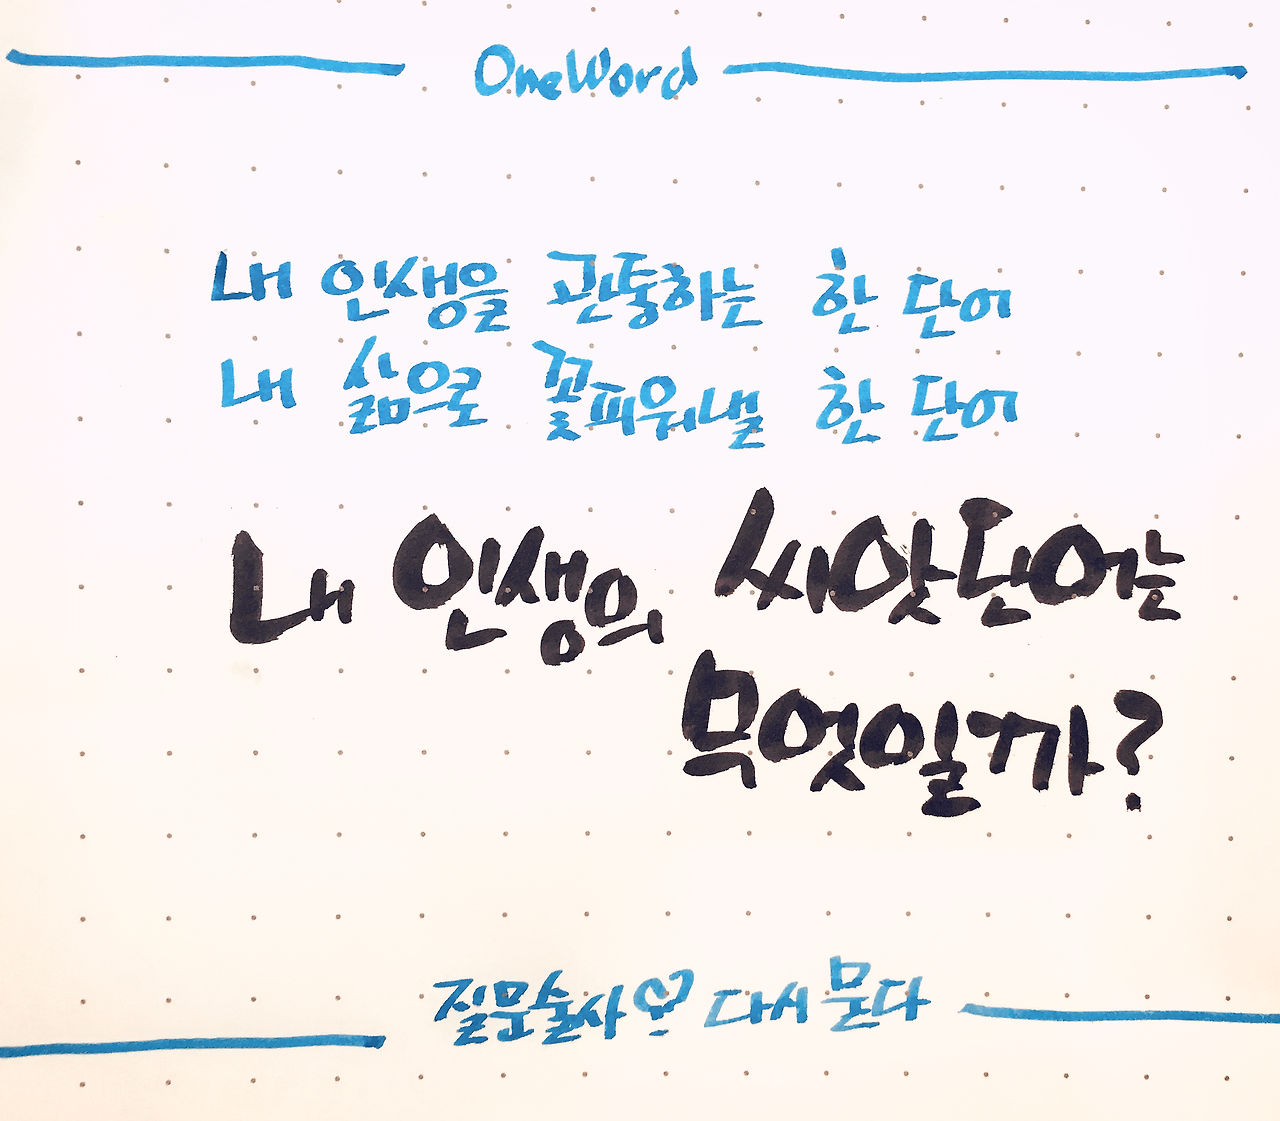 OneWord
내 인생을 관통하는 한 단어
내 삶으로 꽃피워낼 한 단어
내 인생의 씨앗단어는
무엇일까?
질문술사 다시 묻다